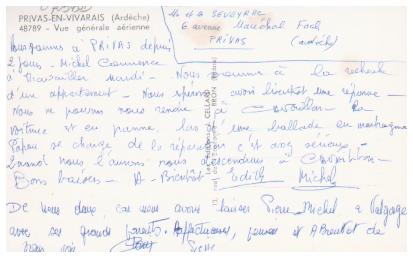 07000
PRIVAS-EN-VIVARAIS (Ardèche)
48789 - Vue générale aérienne
Mr et Me SEVEYRAC
6 avenue Maréchal Foch
PRIVAS
(ardèche)
Nous sommes à PRIVAS depuis
2 jours - Michel Commence
à travailler Mardi - Nous sommes à la recherche
d'un appartement - Nous espérons avoir bientôt une réponse -
Nous ne pouvons nous rendre à Cavaillon la
voiture est en panne, lors d'une ballade en montagne
Papou se charge de la réparation c'est assez sérieux -
Quand nous l'aurons nous descendrons à Cavaillon -
Bons baisers - A - Bientôt Edith Michel
De nous deux, car nous avons laisser Pierre Michel a
avec ses grands parents. Affectueuses pensées et A Bientot de
vous voir
Les Editions CELLARD
BRON (Rhône)